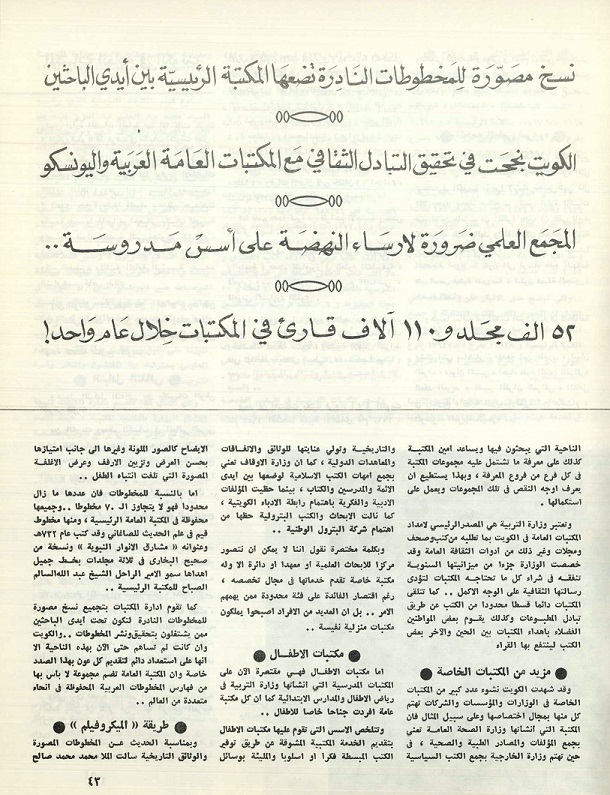 نسخ مصورة للمخطوطات النادرة تضعها المكتبة الرئيسية بين أيدي الباحثين
الكويت نجحت في تحقيق التبادل الثقافي مع المكتبات العامة العربية واليونسكو
المجمع العلمي ضرورة لارساء النهضة على أسس مدروسة ..
٥٢ الف مجلد و ١١٠ آلاف قارئ في المكتبات خلال عام واحد !
الناحية التي يبحثون فيها ويساعد امين المكتبة
كذلك على معرفة ما تشتمل عليه مجموعات المكتبة
في كل فرع من فروع المعرفة ، وبهذا يستطيع ان
يعرف اوجه النقص في تلك المجموعات ويعمل على
استكمالها .
وتعتبر وزارة التربية هي المصدر الرئيسي لامداد
المكتبات العامة في الكويت بما تطلبه من كتب وصحف
ومجلات وغير ذلك من ادوات الثقافة العامة وقد
خصصت الوزارة جزءا من ميزانيتها السنوية
تنفقه في شراء كل ما تحتاجه المكتبات لتؤدي
رسالتها الثقافية على الوجه الاكمل .. كما تتلقى
المكتبات دائما قسطا محدودا من الكتب عن طريق
تبادل المطبوعات وكذلك يقوم بعض المواطنين
الفضلاء باهداء المكتبات بين الحين والآخر بعض
الكتب لينتفع بها القراء
● مزيد من المكتبات الخاصة ●
وقد شهدت الكويت نشوء عدد كبير من المكتبات
الخاصة في الوزارات والمؤسسات والشركات تهتم
كل منها بمجال اختصاصها وعلى سبيل المثال فان
المكتبة التي أنشأتها وزارة الصحة العامة تعنى
بجمع المؤلفات والمصادر الطبية والصحية ، في
حين تهتم وزارة الخارجية بجمع الكتب السياسية
والتاريخية وتولي عنايتها للوثائق والاتفاقات
والمعاهدات الدولية ، كما ان وزارة الاوقاف تعني
بجمع امهات الكتب الاسلامية لوضعها بين ايدى
الائمة والمدرسين والكتاب ، بينما حظيت المؤلفات
الادبية والفكرية باهتمام رابطة الادباء الكويتية ،
كما نالت الابحاث والكتب البترولية حظها من
اهتمام شركة البترول الوطنية ..
وبكلمة مختصرة نقول اننا لا يمكن ان نتصور
مركزا للابحاث العلمية او معهدا او دائرة الا وله
مكتبة خاصة تقدم خدماتها في مجال تخصصه ،
رغم اقتصار الفائدة على فئة محدودة ممن يهمهم
الامر .. بل ان العديد من الافراد اصبحوا يملكون
مكتبات منزلية نفيسة ..
● مكتبات الاطفال ●
اما مكتبات الاطفال فهي مقتصرة الآن على
المكتبات المدرسية التي أنشأتها وزارة التربية في
رياض الاطفال والمدارس الابتدائية كما ان كل مكتبة
عامة افردت جناحا خاصا للاطفال ..
وتتلخص الاسس التي تقوم عليها مكتبات الاطفال
بتقديم الخدمة المكتبية المشوقة عن طريق توفير
الكتب المبسطة فكرا او اسلوبا والمليئة بوسائل
الايضاح كالصور الملونة وغيرها الى جانب امتيازها
بحسن العرض وتزيين الارفف وعرض الاغلفة
المصورة التي تلفت انتباه الطفل ..
اما بالنسبة للمخطوطات فان عددها ما زال
محدودا فهو لا يتجاوز الـ ٧٠ مخطوطا .. وجميعها
محفوظة في المكتبة العامة الرئيسية ، ومنها مخطوط
قيم في علم الحديث للصاغاني وقد كتب عام ٧٢٢هـ
وعنوانه « مشارق الانوار النبوية » ونسخة من
صحيح البخاري في ثلاثة مجلدات بخط جميل
اهداها سمو الامير الراحل الشيخ عبد الله السالم
الصباح للمكتبة الرئيسية ..
كما تقوم ادارة المكتبات بتجميع نسخ مصورة
للمخطوطات النادرة لتكون تحت ايدى الباحثين
ممن يشتغلون بتحقيق ونشر المخطوطات .. والكويت
وان كانت لم تساهم حتى الآن بهذه الناحية الا
انها على استعداد دائم لتقديم كل عون بهذا الصدد
خاصة وان المكتبة العامة تضم مجموعة لا بأس بها
من فهارس المخطوطات العربية المحفوظة في انحاء
متعددة من العالم ..
● طريقة « الميكروفيلم » ●
وبمناسبة الحديث عن المخطوطات المصورة
والوثائق التاريخية سالت الملا محمد محمد صالح
٤٣